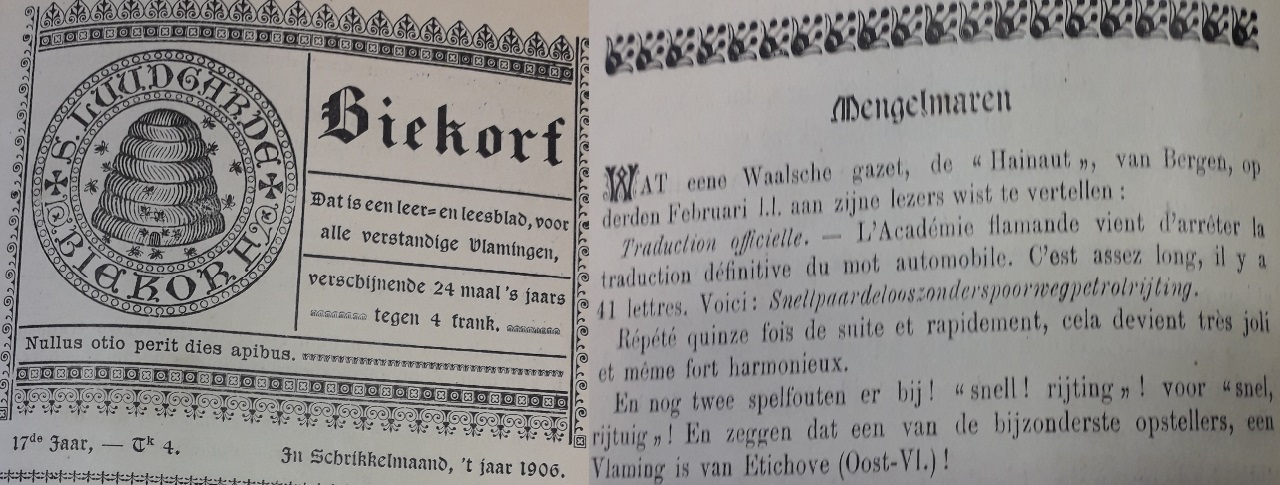 S. LUUDGARDE
BIEKORF
Biekorf
Dat is een leer= en leesblad, voor
alle verstandige Vlamingen,
verschijnende 24 maal 's jaars
tegen 4 frank.
Nullus otio perit dies apibus.
17de Jaar, — Tk 4.
In Schrikkelmaand, 't jaar 1906.
Mengelmaren
WAT eene Waalsche gazet, de “ Hainaut „, van Bergen, op
derden Februari l.l. aan zijne lezers wist te vertellen :
Traduction officielle. — L'Académie flamande vient d'arrêter la
traduction définitive du mot automobile. C'est assez long, il y a
41 lettres. Voici : Snellpaardelooszonderspoorwegpetrolrijting.
Répété quinze fois de suite et rapidement, cela devient très joli
et même fort harmonieux.
En nog twee spelfouten er bij ! “ snell ! rijting „ ! voor “ snel,
rijtuig „ ! En zeggen dat een van de bijzonderste opstellers, een
Vlaming is van Etichove (Oost-Vl.) !